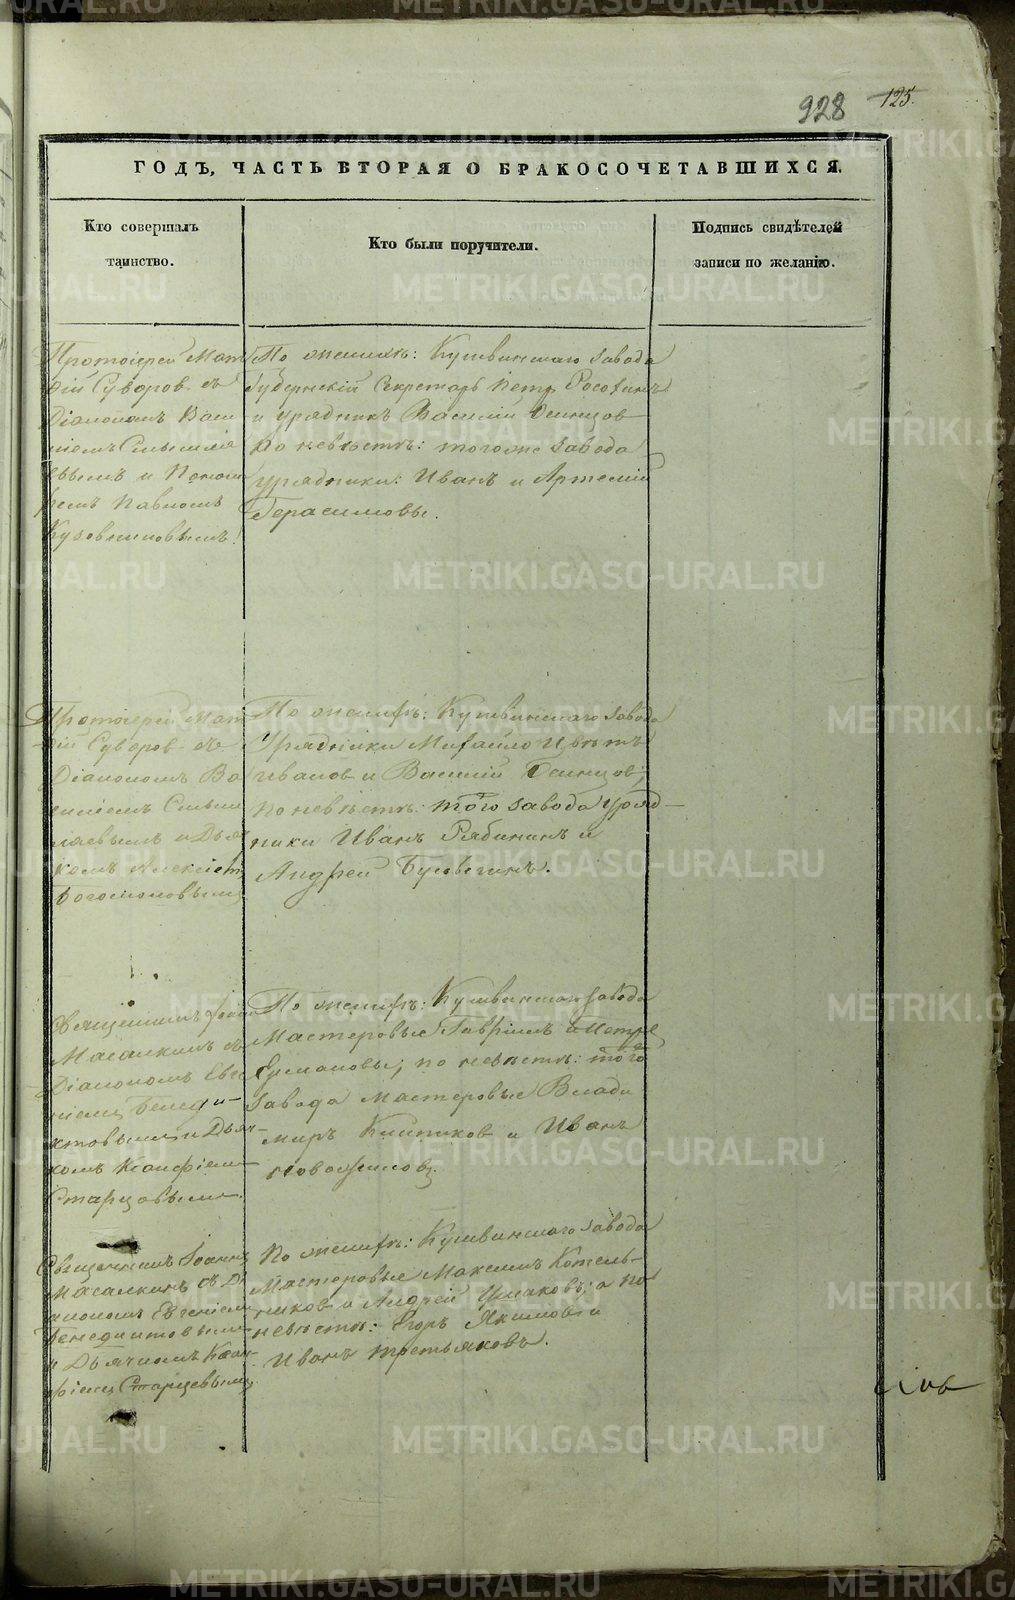 928 125.
ГОДЪ, ЧАСТЬ ВТОРАЯ О БРАКОСОЧЕТАВШИХСЯ.
Кто совершалъ
таинство.
Кто были поручители.
Подпись свидѣтелей
записи по желанію.
Протоіерей Мат
ѳій Суворов съ
Діакономъ Васи
ліемъ
и Поном
ремъ Павломъ
По женихѣ: Кушвинскаго завода
Губернскій Секретарь Петръ
и урядникъ Василій
по невѣстѣ: тогоже завода
урядники: Иванъ и Артемій
Герасимовы.
Протоіерей Мат
ѳій Суворов съ
Діакономъ Ва
силіемъ
и Дьяч
комъ Алексіем
Богомоловымъ
По женихѣ: Кушвинскаго завода
Урядники Михайло
и Василій
по невѣстѣ: того завода уряд-
ники Иванъ Рябининъ и
Андрей
Священникъ Іоан
Масалкинъ съ
Діакономъ Евге
ніемъ Бенеди-
ктовымъ и Дьяч-
комъ Ксанфіем
Старцовымъ.
По женихѣ: Кушвинскаго завода
Мастеровые Гавріилъ и Петръ
Ермаковы; по невѣстѣ: того
завода мастеровые Влади
миръ и Иванъ
Новожилов.
Священникъ Іоаннъ
Масалкинъ съ Ді
акономъ Евгеніем
Бенедиктовымъ
и Дьячкомъ Ксан-
фіем Старцевымъ
По женихѣ: Кушвинскаго завода
Мастеровые Максимъ Котель-
ников и Андрей Ушаковъ, а по
невѣстѣ: Егоръ Якимов и
Иванъ Третьяковъ.
METRIKI.GASO-URAL.RU